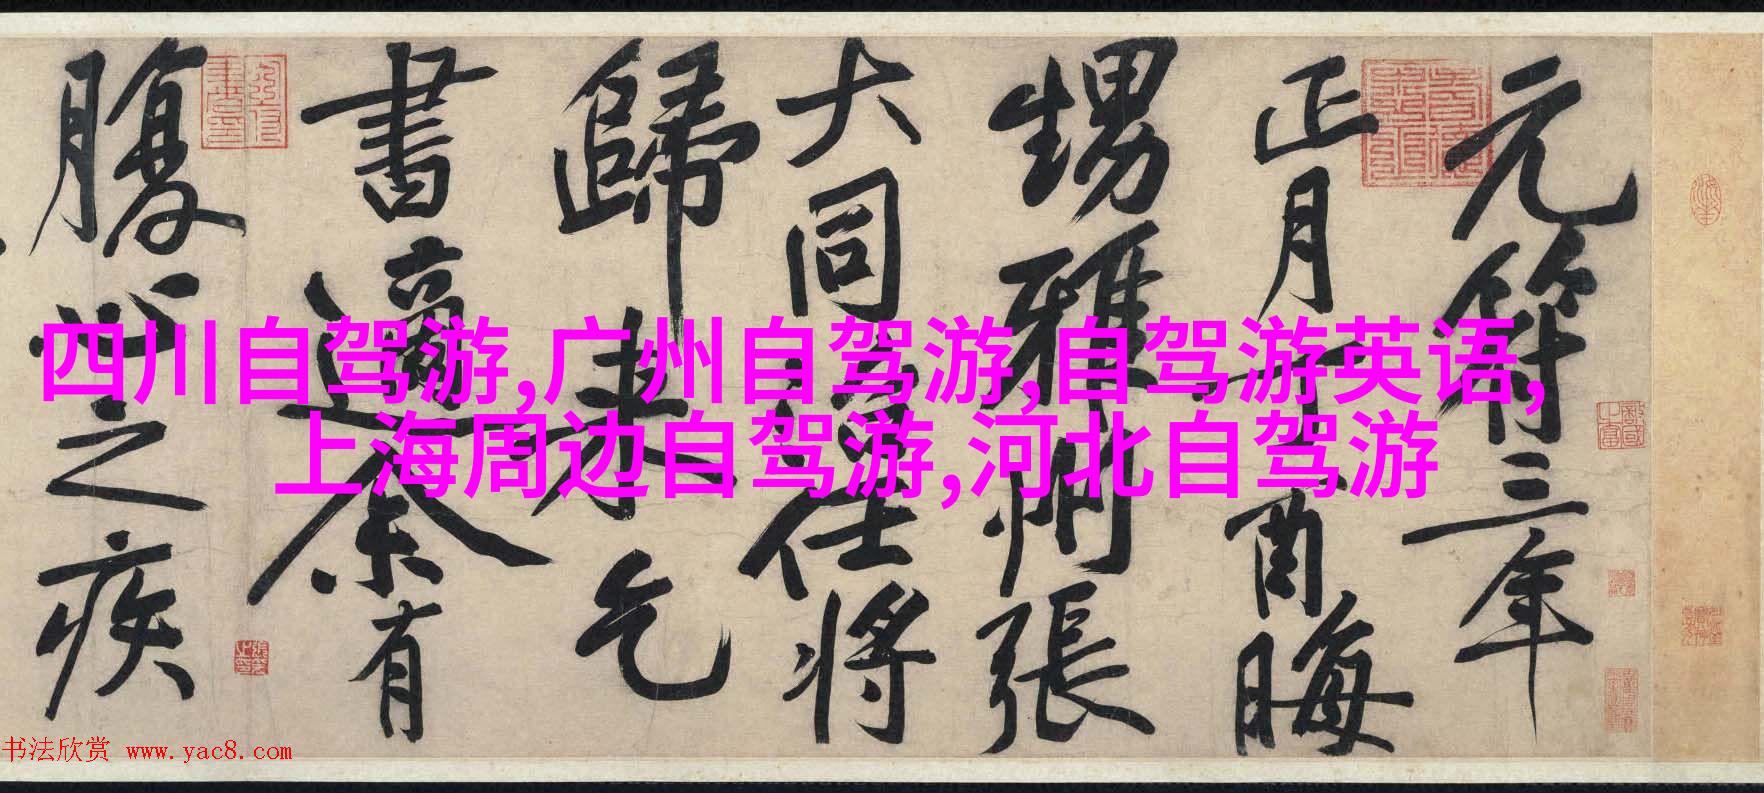 元符三年
正月丁酉晦
甥雅州張
大同治任將
歸來乞
書適余有
腹心之疾
四川自驾游,广州自驾游,自驾游英语,
上海周边自驾游,河北自驾游
书法欣赏 www.yac8.com